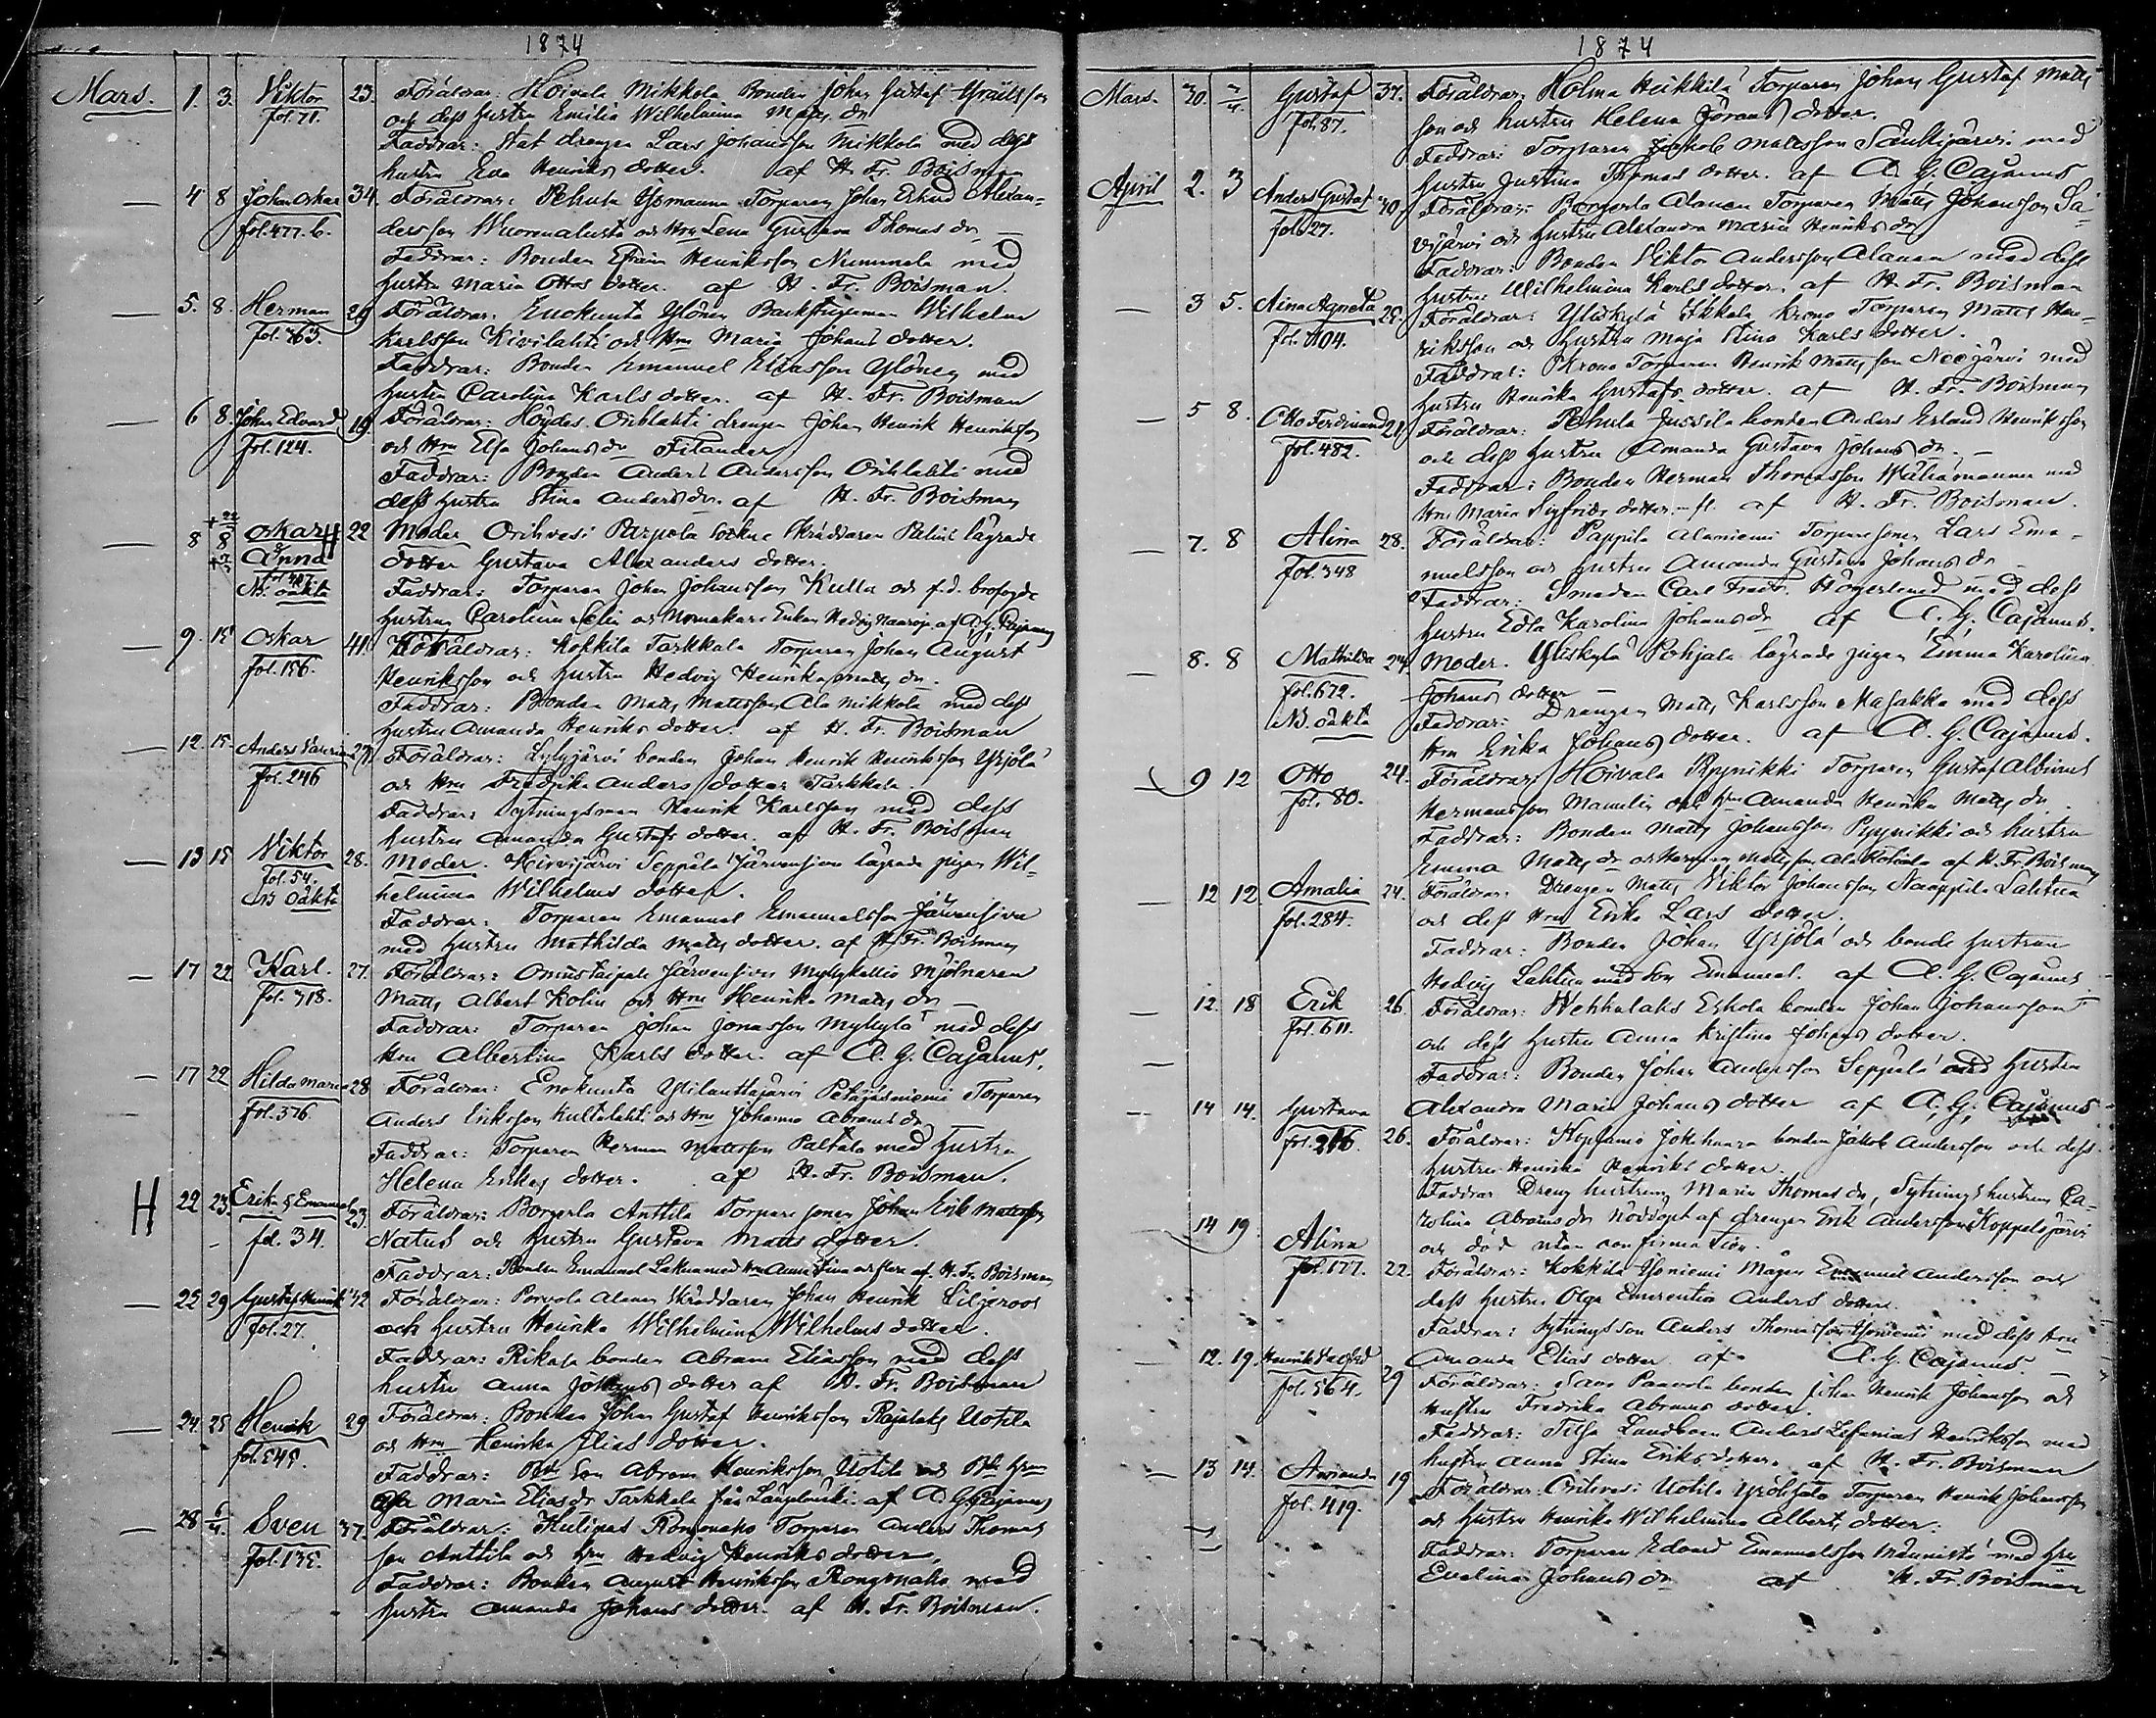 1874
Mars. 1. 3. Viktor 23. Föräldrar: Hoivala Mikkola Bonden Johan Gustaf
fol. 71. och dess hustru Emilia Wilhelmina Matts dr
Faddrar: Stat drengen Lars Johansson Mikkola med dess
hustru Eva Henriks dotter. af H. Fr. Boisman
— 4 8 Johan Oskar 34. Föräldrar: Pehula Ysmanna Torparen Johan Erland Alexan-
fol. 477. b. dersson Wuorenalusta och Hru Lena Gustava Thomas dr —
Faddrar: Bonden Efraim Henriksson Nummela med
hustru Maria Ottos dotter. af H. Fr. Boisman.
— 5. 8. Herman 29 Föräldrar: Enokunta Ylönen Backstugeman Wilhelm
fol. 363. Karlsson Kivilahti och Hru Maria Johans dotter.
Faddrar: Bonden Emanuel Eliasson Ylönen med
hustru Carolina Karls dotter. af H. Fr. Boisman
— 6 8. Johan Edvard 19. Föräldrar: Höydes Orihlahti drengen Johan Henrik Henriksson
fol. 124. och Hru Elsa Johans dr Filander
Faddrar: Bonden Anders Andersson Orihlahti med
dess hustru Stina Anders dr. af H. Fr. Boisman
— 8 8 Oskar H 22 Moder Orihvesi Parpola socken Skräddaren Palins lägrade
Anna dotter Gustava Alexanders dotter.
NB. oäkta Faddrar: Torparen Johan Johansson Kulla och f.d. brofogde
hustrun Carolina Selin af A. G. Cajanus
— 9. 15 Oskar 41. Föräldrar: Kokkila Tarkkala Torparen Johan August
fol. 156. Henriksson och hustru Hedvig Henrika Matts dr.
Faddrar: Bonden Matts Mattsson Ala Mikkola med dess
hustru Amanda Henriks dotter. af H. Fr. Boisman
— 12. 15. Anders 27. Föräldrar: Lyhyjärvi bonden Johan Henrik Henriksson Yrjölä
fol. 246 och Hru Fredrika Anders dotter Tarkkala.
Faddrar: Sytningsman Henrik Karlsson med dess
hustru Amanda Gustafs dotter. af H. Fr. Boisman
— 13 15 Viktor 28. Moder. Hirvijärvi Seppälä Järvensivu lägrade pigan Wil-
fol. 54. helmina Wilhelms dotter.
NB Oäkta Faddrar: Torparen Emanuel Emanuelsson Järvensivu
med hustru Mathilda Matts dotter. af H. Fr. Boisman
— 17 22 Karl. 27. Föräldrar: Onnistaipale Järvensivu Myllykallio Mjölnaren
fol. 318. Matts Albert Kolin och Hru Henrika Matts dr —
Faddrar: Torparen Johan Jonasson Myllylä med dess
Hru Albertina Karls dotter. af A. G. Cajanus.
— 17 22 Hilda Maria 28. Föräldrar: Enokunta Petäjäsniemi Torparen
fol. 376 Anders Eriksson Kultalahti och Hru Johanna Abrams dr
Faddrar: Torparen Herman Mattsson Paltala med hustru
Helena Eriks dotter. af H. Fr. Boisman.
H 22 23. Erik Emanuel 23. Föräldrar: Borgerla Anttila Torpare sonen Johan Erik Mattsson
fol. 34. Natus och hustru Gustava Matts dotter.
Faddrar: Bonden Emanuel med Hru Anna Stina och flere af. H. Fr. Boisman
— 22 29 Gustaf Henrik 42 Föräldrar: Alanen Skräddaren Johan Henrik Liljeroos
fol. 27. och hustru Henrika Wilhelmina Wilhelms dotter.
Faddrar: Rikala bonden Abram Eliasson med dess
hustru Anna Johans dotter af H. Fr. Boisman
— 24. 25 Henrik 29 Föräldrar: Bonden Johan Gustaf Henriksson Rajalahti Uotila
fol. 545. och Hru Henrika Elias dotter.
Faddrar: Bde son Abram Henriksson Uotila och
Maria Elias dr Tarkkala från Längelmäki af A. G. Cajanus
— 28 6/4. Sven 37. Föräldrar: Kulipas Rongonaho Torparen Anders Thomas
fol. 135. son Anttila och Hru Hedvig Henriks dotter.
Faddrar: Bonden August Henriksson Rongonaho med
hustru Amanda Johans dotter. af H. Fr. Boisman.
1874
Mars. 30. Gustaf 37. Föräldrar: Holma Heikkilä Torparen Johan Gustaf Matts
fol. 87. son och hustru Helena Görans dotter.
Faddrar: Torparen Jakob Mattsson Saukijärvi med
hustru Justina Thomas dotter. af A. G. Cajanus
April 2. 3 Anders Gustaf 40. Föräldrar: Borgerla Alanen Torparen Matts Johansson Sa-
fol. 27. vijärvi och hustru Alexandra Maria Henriks dr
Faddrar: Bonden Viktor Andersson Alanen med dess
hustru Wilhelmina Karls dotter. af H. Fr. Boisman
— 3 5. Aina Agneta 25. Föräldrar: Yliskylä Ikkala Krono Torparen Matts Hen-
fol. 404. riksson och hustru Maja Stina Karls dotter.
Faddrar: Krono Torparen Henrik Mattsson med
hustru Henrika Gustafs dotter. af H. Fr. Boisman
— 5 8. Otto Ferdinand 21. Föräldrar: Pehula Jussila bonden Anders Erland Henriksson
fol. 482. och dess hustru Amanda Gustava Johans dr. —
Faddrar: Bonden Herman Thomasson med
Hru Maria Sigfrids dotter. fl. af H. Fr. Boisman.
— 7. 8 Alina 28. Föräldrar: Pappila Alaniemi Torparesonen Lars Ema-
fol. 348 nuelsson och hustru Amanda Gustava Johans dr —
Faddrar: Smeden Carl Fredr. Högerlund med dess
hustru Edla Karolina Johans dr af A. G. Cajanus.
— 8. 8 Mathilda 24. Moder. Yliskylä Pohjala lägrade pigan Emma Karolina
fol. 672. Johans dotter —
NB. oäkta Faddrar: Drengen Matts Karlsson Masakka med dess
Hru Erika Johans dotter. af A. G. Cajanus.
— 9 12 Otto 24. Föräldrar: Hoivala Pyynikki Torparen Gustaf Albinus
fol. 80. Hermansson Mamelin och Hru Amanda Henrika Matts dr.
Faddrar: Bonden Matts Johansson Pyynikki och hustru
Emma Matts dr och af H. Fr. Boisman
— 12 12 Amalia 24. Föräldrar: Drengen Matts Viktor Johansson Naappila Lahtua
fol. 284. och dess Hru Erika Lars dotter.
Faddrar: Bonden Johan Yrjölä och bonde hustrun
Hedvig Lahtua med son Emanuel. af A. G. Cajanus
— 12. 18 Erik 26. Föräldrar: Wehkalaks Eskola bonden Johan Johansson
fol. 611. och dess hustru Anna Kristina Johans dotter.
— Faddrar: Bonden Johan Andersson Seppälä med hustru
Alexandra Maria Johans dotter af A. G. Cajanus
— 14 14. Gustava 26. Föräldrar: bonden Jakob Andersson och dess
fol. 216. hustru Henrika Henriks dotter.
Faddrar Dreng hustrun Maria Thomas dr, Sytnings hustrun Ca-
rolina Abrams dr nöddöpt af drengen Erik Andersson Koppelojärvi
och död utan confirmation.
14 19 Alina 22. Föräldrar: Kokkila Yliniemi Mågen Emanuel Andersson och
fol. 177. dess hustru Olga Emerentia Anders dotter.
Faddrar: Sytnings son Anders Thomasson Yliniemi med dess Hru
Amanda Elias dotter. af A. G. Cajanus —
— 12. 19. Henrik 29 Föräldrar: Savo Paavola bonden Johan Henrik Johansson och
fol. 564. hustru Fredrika Abrams dotter.
Faddrar: Lundbom Anders Zefanias Henriksson med
hustru Anna Stina Eriks dotter. af H. Fr. Boisman
— 13 14. Amanda 19 Föräldrar: Orihvesi Uotila Torparen Henrik Johansson
fol. 419. och hustru Henrika Wilhelmina Alberts dotter.
Faddrar: Torparen Edvard Emanuelsson Männistö med Hru
Evelina Johans dr af H. Fr. Boisman